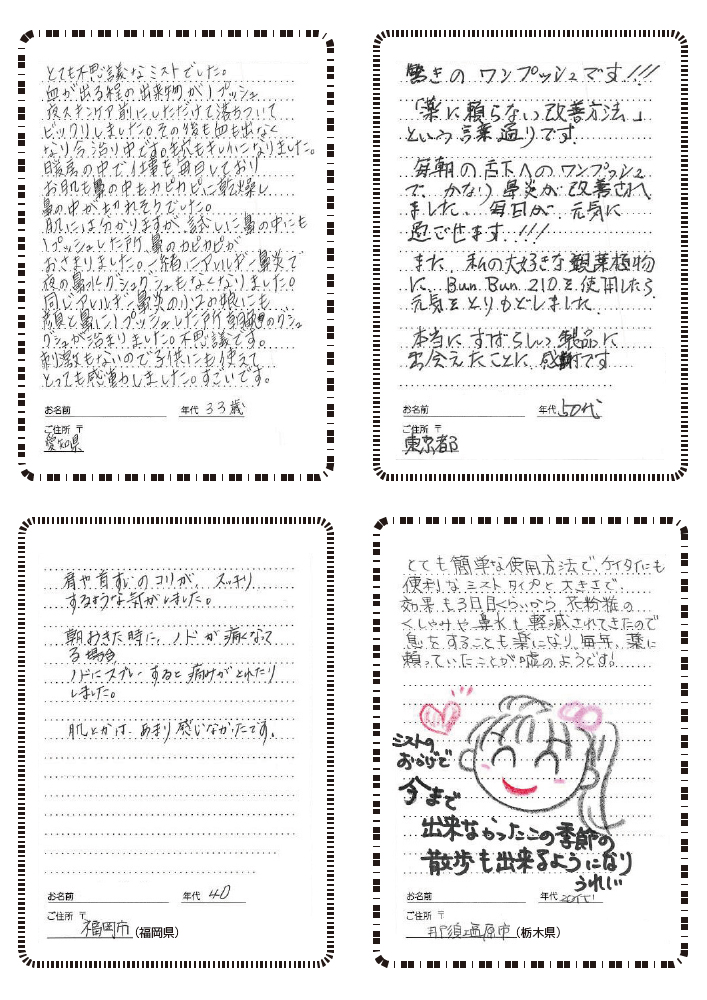 とても不思議なミストでした。
血が出る程の出来物が1プッシュ
夜スキンケア前にしただけで落ちついて
ビックリしました。その後も血も出なく
なり今治り中です。も キレイになりました。
暖房の中で仕事を毎日しており
お肌も鼻の中もカピカピに乾燥し
鼻の中が切れそうでした。
肌には分かりますが、試しに鼻の中にも
1プッシュした所、鼻のカピカピが
おさまりました。一緒にアレルギー鼻炎で
夜の鼻水グシュグシュもなくなりました。
同じアレルギー鼻炎の小2の娘にも
顔と鼻に1プッシュした所 のグシュ
グシュが治まりました。不思議です。
刺激もないので子供にも使えて
とっても感動しました。すごいです。
お名前 年代 33歳
ご住所 〒
愛知県
驚きの ワンプッシュです!!!
「薬に頼らない改善方法」
という言葉通りです
毎朝の舌下へのワンプッシュ
で、かなり鼻炎が改善され
ました。毎日が、元気に
過ごせます.!!!
また、私の大好きな観葉植物
に、Bun Bun 210を使用したら
元気をとりもどしました
本当に すばらしい 製品に
出会えたことに 感謝です
お名前 年代 50代
ご住所 〒
東京都
肩や首すじのコリが、スッキリ
するような気がしました。
朝おきた時に、ノドが痛くなって
る場合、
ノドにスプレーすると痛みがとれたり
しました。
肌とかは、あまり感じなかったです。
お名前 年代 40
ご住所 〒
福岡市 (福岡県)
とても簡単な使用方法で、ケイタイにも
便利なミストタイプと大きさで、
効果も3日目くらいから、花粉症の
くしゃみや鼻水も軽減されてきたので
息をすることも楽になり、毎年、薬に
頼っていたことが嘘のようです!
ミストの
おかげで
今まで
出来なかったこの季節の
散歩も出来るようになり
うれしい
お名前 年代 20代
ご住所 〒
那須塩原市 (栃木県)